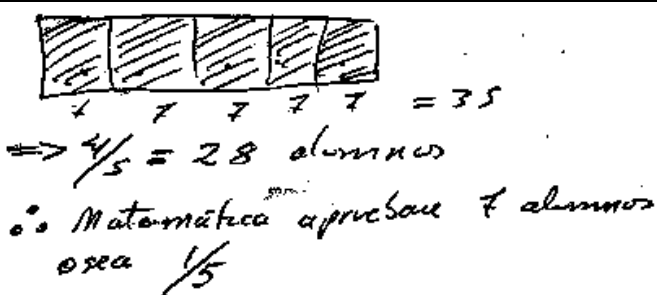 7 7 7 7 7 = 35
=> 4/5 = 28 alumnos
∴ Matemática aprueban 7 alumnos
osea 1/5